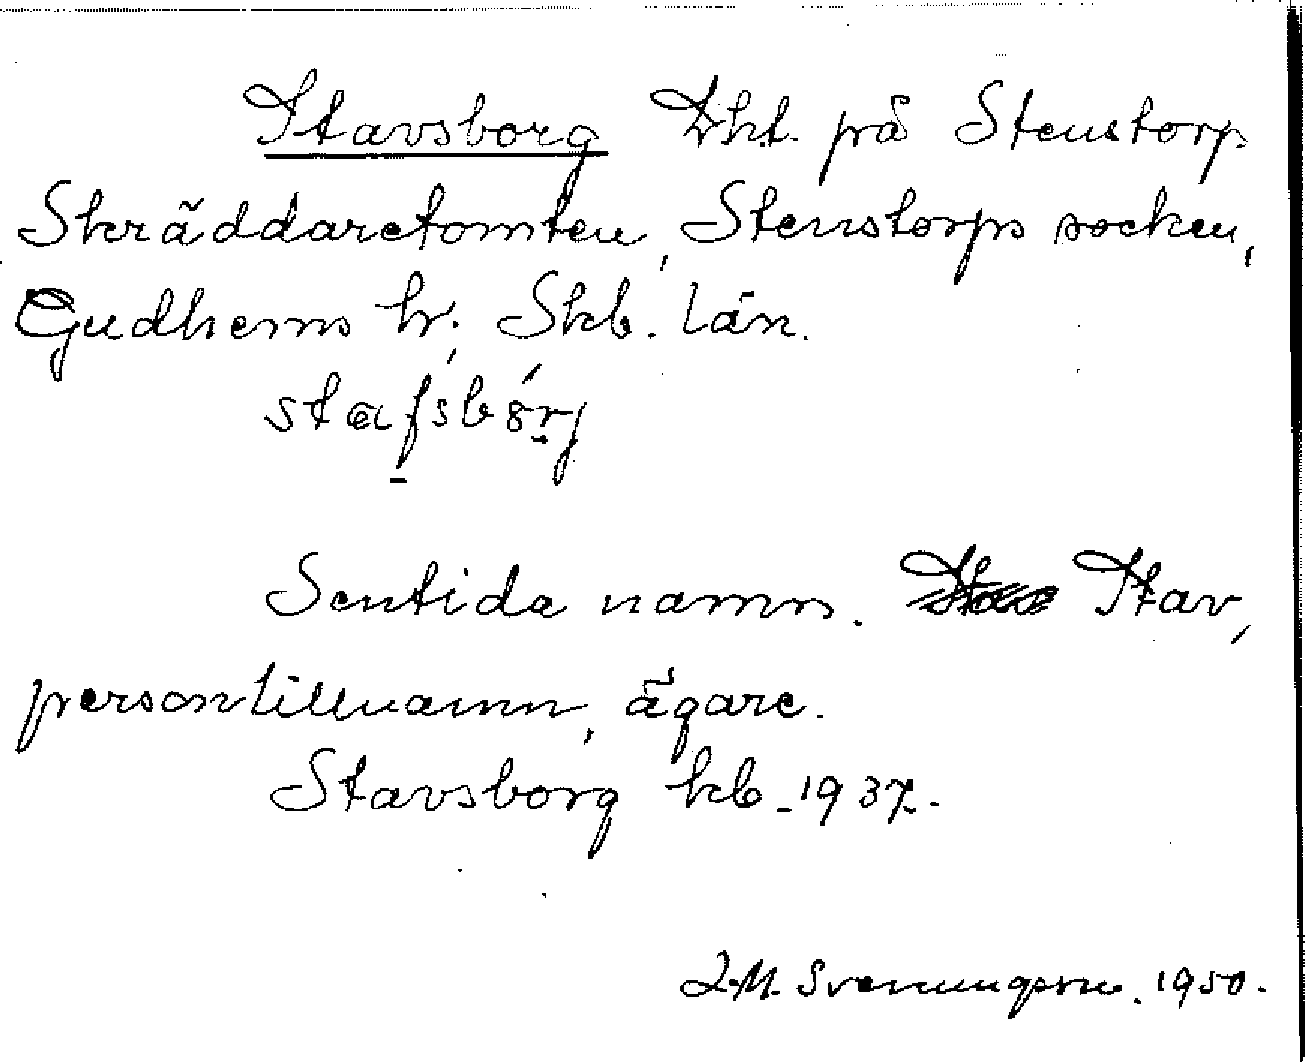 Stavsborg Lht. på Stenstorp
Skräddaretomten, Stenstorps socken,
Gudhems hr, Skb. län.
Sentida namn. Stav,
persontillnamn, ägare.
Stavsborg kb. 1937.
Svenungsson. 1950.